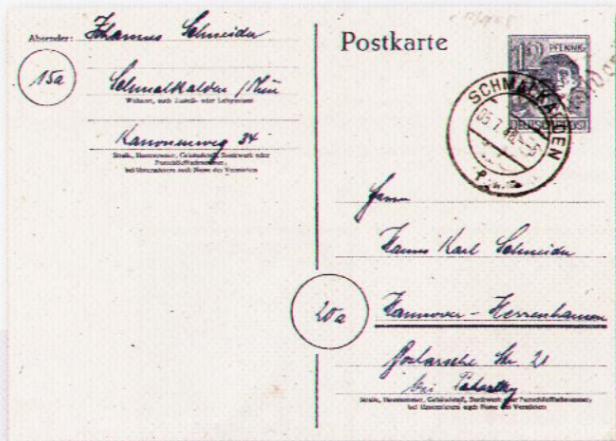 Absender: Johannes Schneider
15a
Schmalkalden / Thür
Wohnort, auch Zustell- oder Leitpostamt
Kanonenweg 34
Straße, Hausnummer, Gebäudeteil, Stockwerk oder
Postschließfachnummer,
bei Untermietern auch Name des Vermieters
Postkarte
12 PFENNIG
DEUTSCHE POST
SCHMALKALDEN
Herrn
Hanns Karl Schneider
20a
Hannover - Herrenhausen
Str. 21
bei
Straße, Hausnummer, Gebäudeteil, Stockwerk oder Postschließfachnummer,
bei Untermietern auch Name des Vermieters